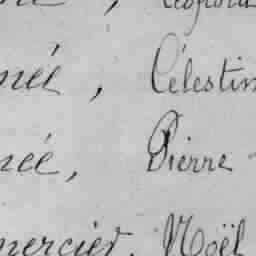 née, Célestin
née, Pierre
mercier, Noël